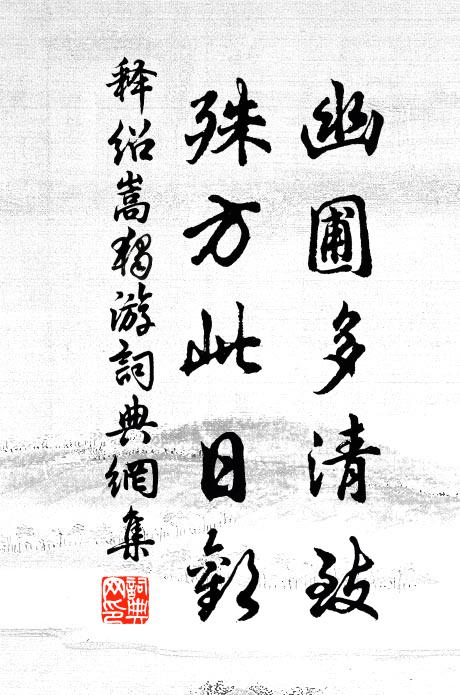 幽圃多清致
殊方此日歡
释紹嵩獨游詞典網集
詞典网印